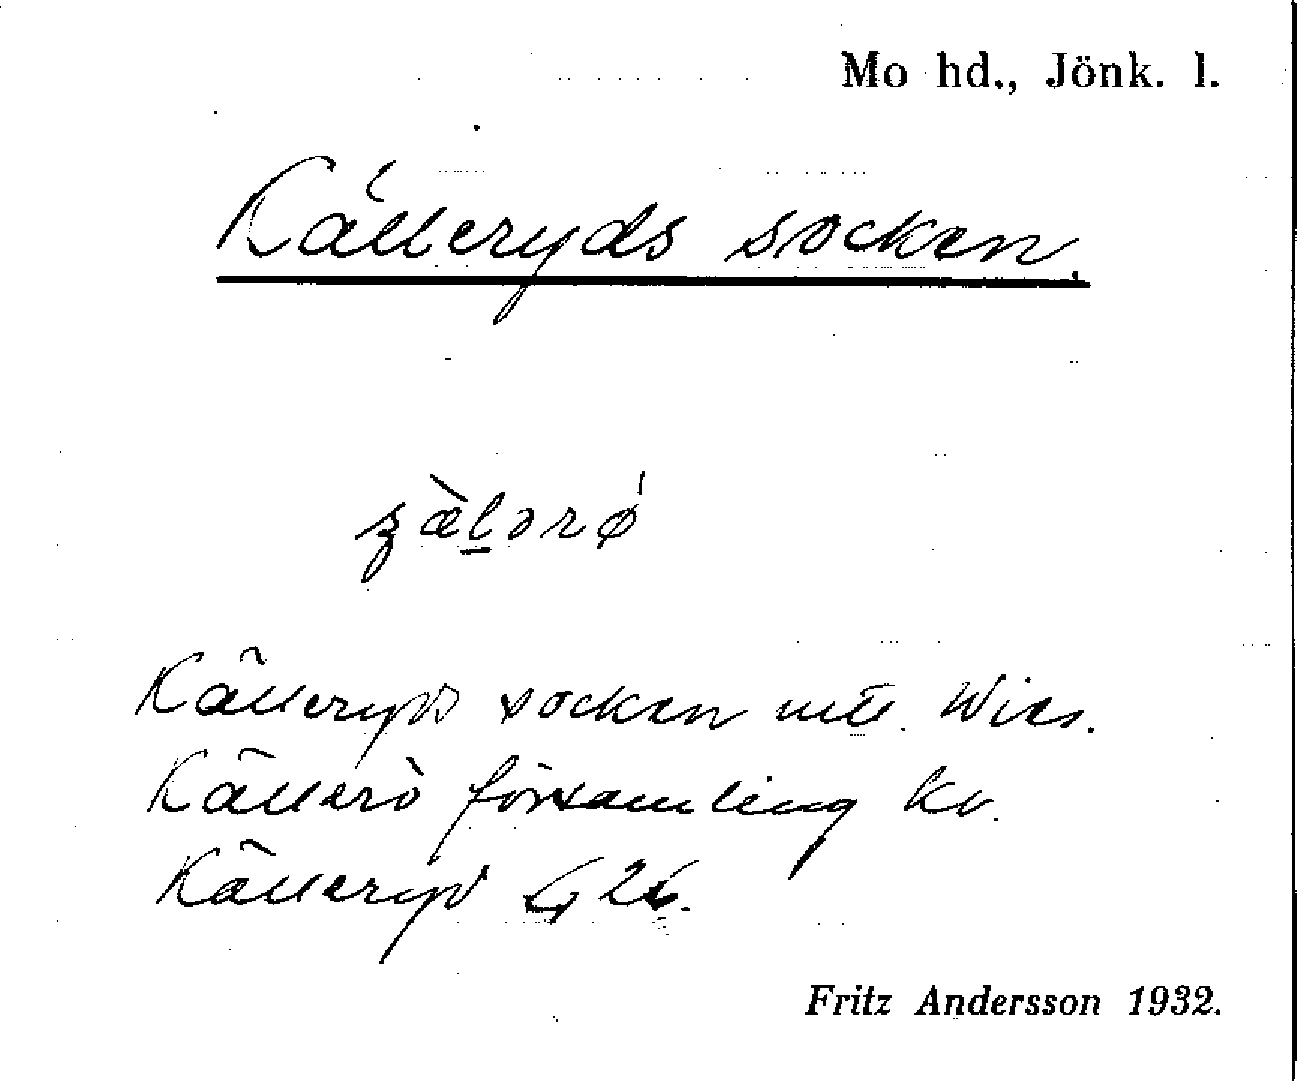 Mo hd., Jönk. l.
Källeryds socken.
Källeryds socken Wies.
Källerö församling kv.
Källeryd G 26.
Fritz Andersson 1932.